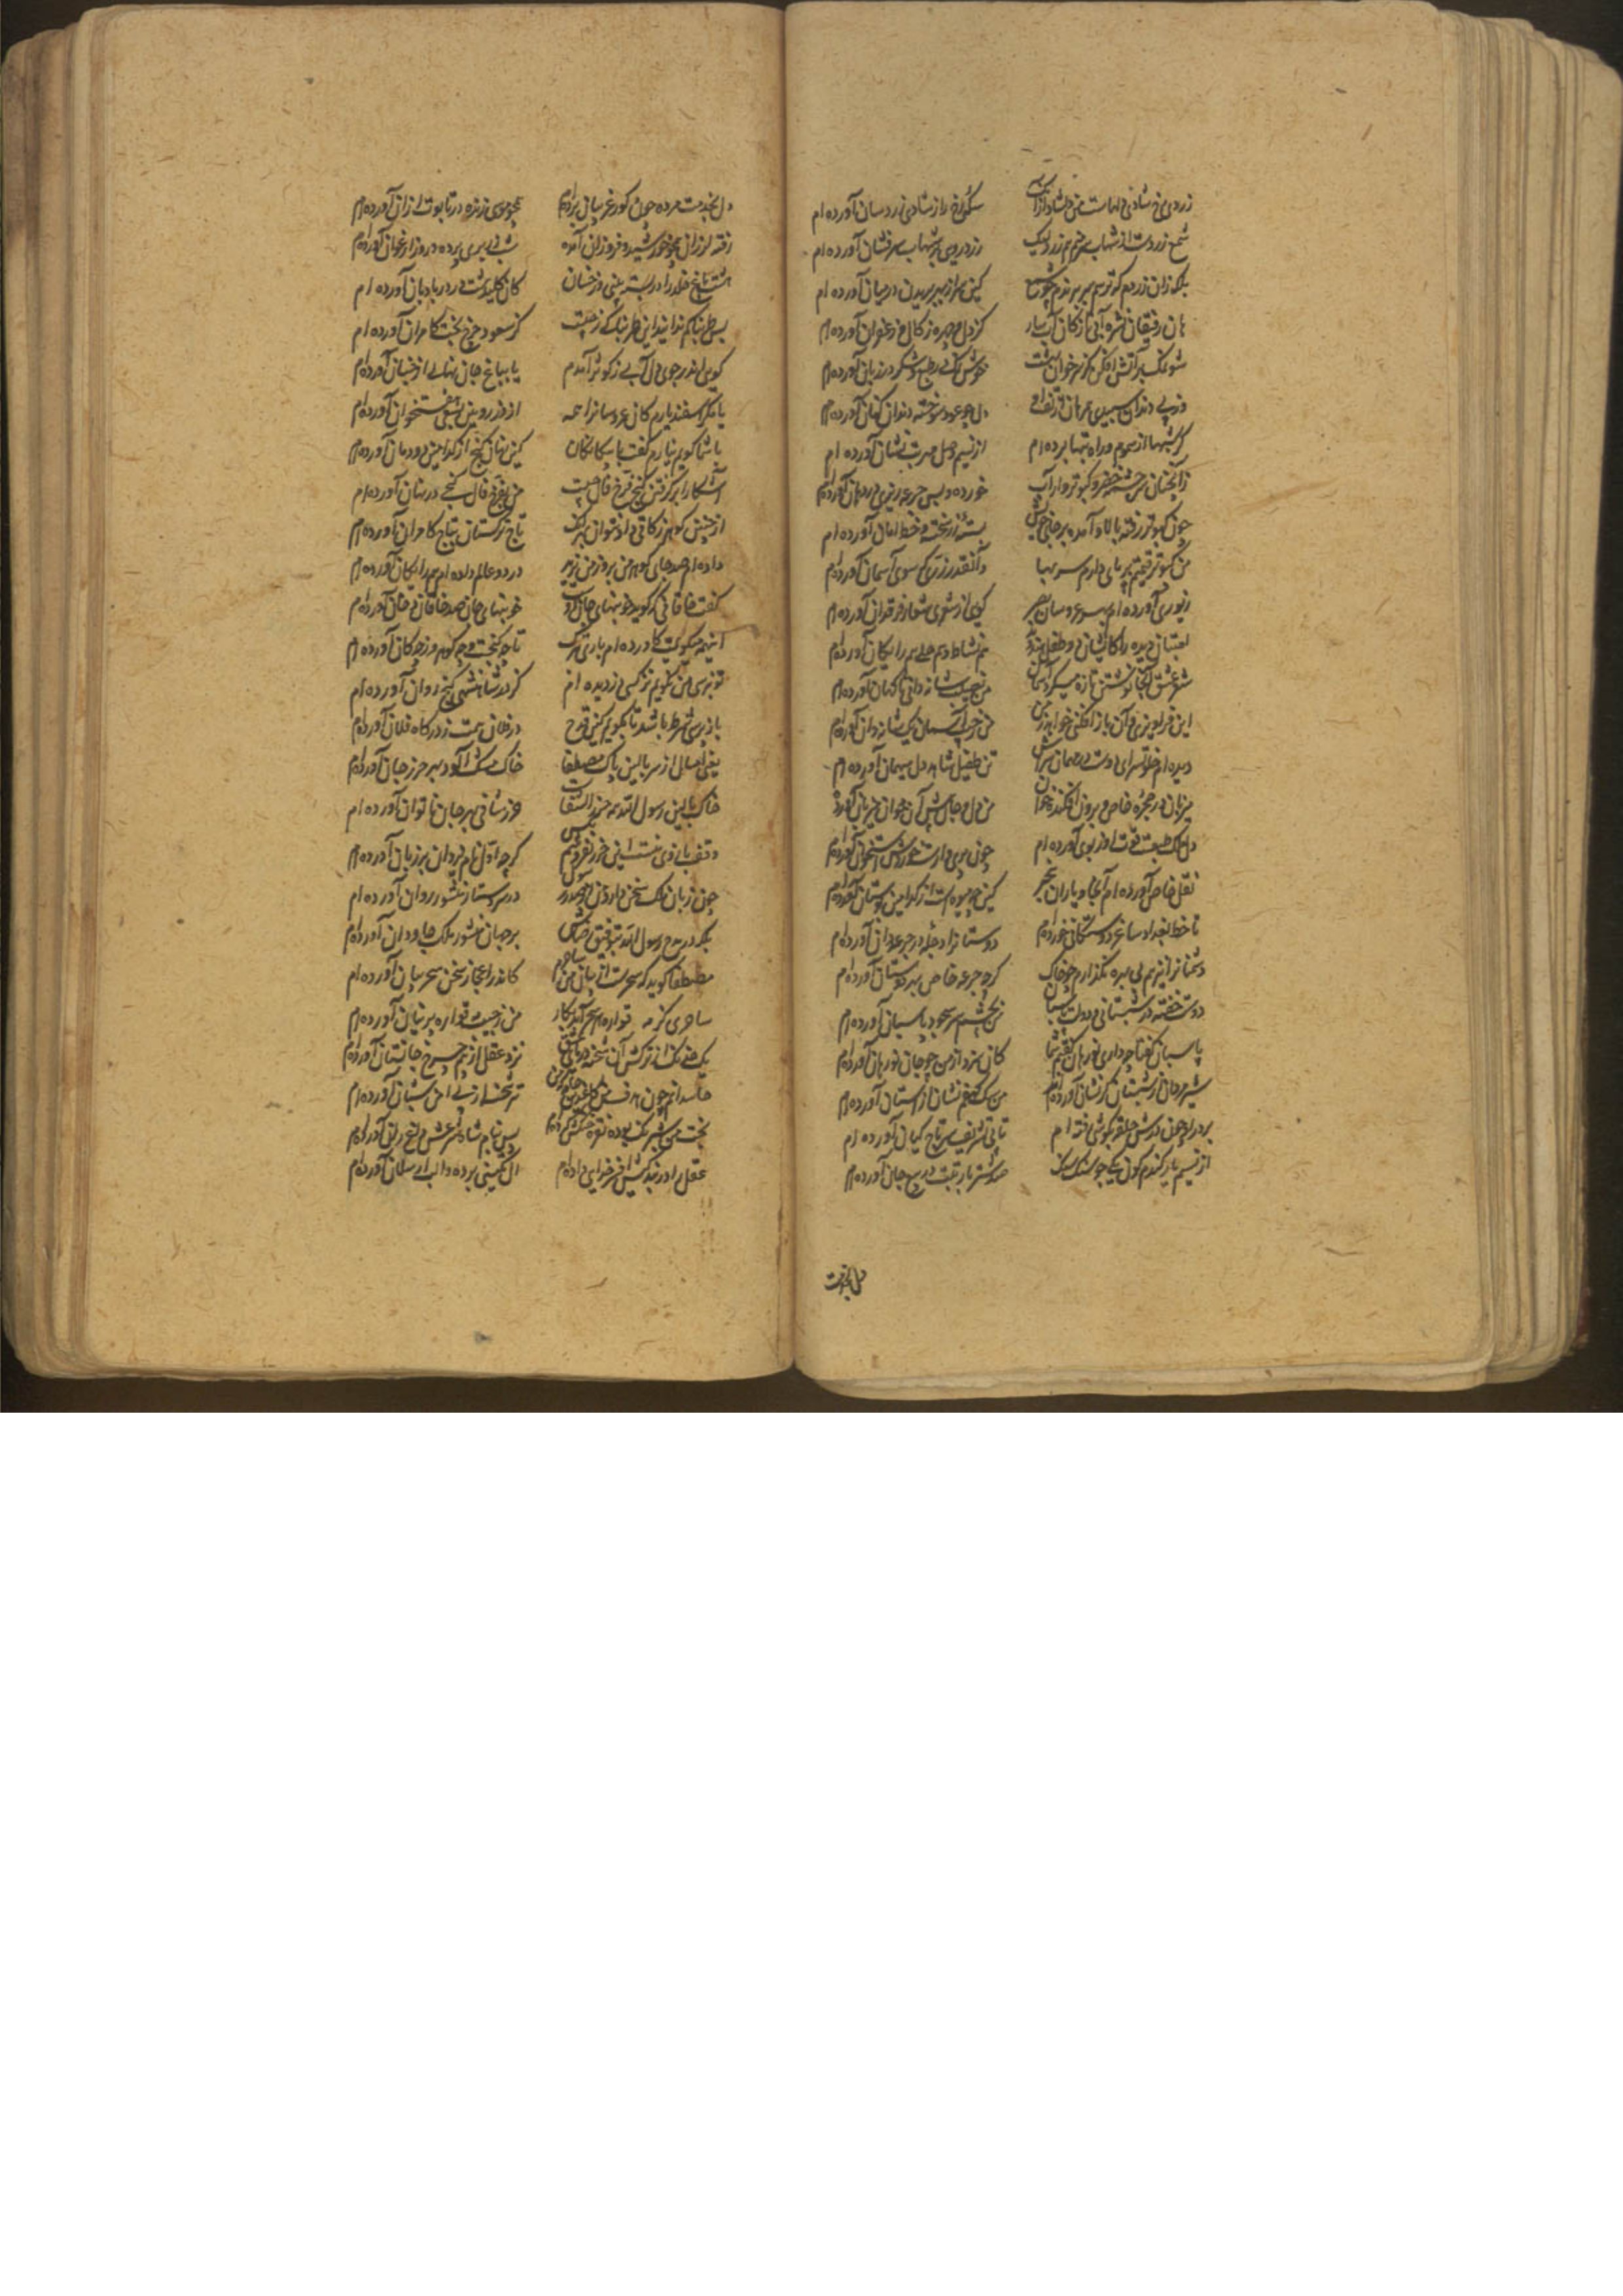 زردی شادی دلهاست من دلشاد ازان سکه رخ را ز شادی رسان آورده ام
شمع زردست از نهیب سر منم زرد لیک زردرویی نز نهیب سرفشان آورده ام
بلکه زان زردم که ترسم سر برندم چون شمع کین سر از بهر بریدن در میان آورده ام
هان رفیقان نشره آبی یا زکان آب بیار کز دل و چهره زکال و زعفران آورده ام
شو نمک بر آتش افکن کز سر خوان بهشت خوش نمک در طبع و شکر در زبان آورده ام
وز پی دندان سپیدی همرهان از تف آه دل چو عود سوخته دندان کنان آورده ام
گر شبها از سموم و راه تبها برده ام از نسیم وصل مهر تب نشان آورده ام
زانچنان سرچشمه خضر و کبوتروار آب خورده و پس جرعه ریزی در دهان آورده ام
چون کبوتر رفته بالا و آمده بر جای خویش بسته زر تحفه و خط امان آورده ام
من کبوتر قیمتم بر پای دارم سر بها آنقدر زری که سوی آسمان آورده ام
زیوری آورده ام بهر عروسان بصر گویی از شعری شعار فرقدان آورده ام
لعبتان دیده را کایشان دو طفل هندواند هم نشاط و هم حلی هم رایگان آورده ام
شعر عشق آنجا نوشتن تازه میکرد آسمان من نصیب شانه دانی تا کمان آورده ام
این فرو بیزی و آن باز افکنی خواهند و من من چراغ سمان یک شانه دان آورده ام
دیده ام خلوتسرای دوست در مهمان سراش تن طفیل و شاهد دل میهمان آورده ام
میزبان در حجره خاص و برون افکنده خوان من دل و جان پیش آن خوان میزبان آورده ام
دل ملک طبعست قوت او ز بوی آورده ام چون پری وارست خوردش استخوان آورده ام
نقل خاص آورده ام آنجا و یاران بیخبر کین چه میوه ست از کدامین بوستان آورده ام
تا خط بغداد ساغر دوستکانی خورده ام دوستان را دجله در جرعه دان آورده ام
دشمنان را نیز هم بی بهره نگذارم چو خاک گرچه جرعه خاص بهر دوستان آورده ام
دوست خفته در شبستانی و دولت پاسبان من بچشم و سر سجود پاسبان آورده ام
پاسبان گفتا چه داری نورهان گفتم شما کان زر دارید و من جان نورهان آورده ام
شیر مردان از شبستان گر نشان آورده اند من سگ کهفم نشان از آستان آورده ام
بر در او چون درش حلقه بگوشی رفته ام تا نپنداری تشریف سر تاج کیان آورده ام
از نسیم یار گندم گون یکی جو سنگ مشک صد شتر بار تبت در جیب جان آورده ام
دل بخدمت
دل بخدمت مرده چون گور غریبان برده ام همچو موسی زنده در تابوت ازان آورده ام
رفته لرزان همچو خورشید و فروزان آمده شب زیری برده و روز ارغوان آورده ام
هشت باغ خلد را در بسته بینی در خسان کان کلید هشت در در بادبان آورده ام
بس طربناکم ندانید این طربناکی ز چیست کز سعود چرخ بخت کامران آورده ام
گویی اندر جوی دل آبی ز کوثر آمدم یا بباغ جان نهالی از جنان آورده ام
یا مگر اسفندیارم کان عروسان را همه از دژ رویین بسعی هفتخوان آورده ام
با شما گویم نیارم گفت با بیگانگان کین نهان گنج از کدامین دودمان آورده ام
آشکارا برگرفتن گنج فرخ فال چیست من بفرخ فال گنجی در نهان آورده ام
از چنین گوهر زکاتی داد نتوان بهر آنک تاج ترکستان بباج کامران آورده ام
داده ام صد جان بهای گوهری در من یزید در دو عالم داده ام پس رایگان آورده ام
گفت خاقانی که گوید خونبهای جان توست خونبهای جان صد خاقان و خان آورده ام
اینهمه میگویمت کآورده ام باری بپرس تا چه گنجست و چه گوهر وز چه کان آورده ام
تو نپرسی من نگویم نز کسی دزدیده ام کز در شاهنشهی گنج روان آورده ام
باز پرسی شرط باشد تا بگویم کین فتوح در فلان مدت ز درگاه فلان آورده ام
یعنی امسال از سر بالین پاک مصطفی خاک مشک آلود بهر حرز جان آورده ام
خاک بالین رسول الله همه حرز شفاست حرز شافی بهر جان ناتوان آورده ام
وقف بازوی منست این حرز نفروشم بکس گرچه اول نام دادن بر زبان آورده ام
چون زبان ملک سخن دارد من از صدر رسول در سر دستار منشور روان آورده ام
بلکه در مدح رسول الله بتوفیق رضاش بر جهان منشور ملک جاودان آورده ام
مصطفی گوید که سحرست از بیان من ساحرم کاندر اعجاز سخن سحر بیان آورده ام
ساحری را گر قواره بهر سحر آید بکار من ز جیب مه قواره پرنیان آورده ام
یک خدنگ از ترکش آن شحنه دریای عشق نزد عقل از بهر چرخ جانستان آورده ام
حاسدانم چون هدف بین کاغذین جامه که من تیر شحنه از پی امن شبان آورده ام
بخت من شبرنگ بوده نقره خنگش کرده ام پس بنام شاه شرعش داغ ران آورده ام
عقل را در بندگیش افسر خدایی داده ام آلتکینی برده والب ارسلان آورده ام